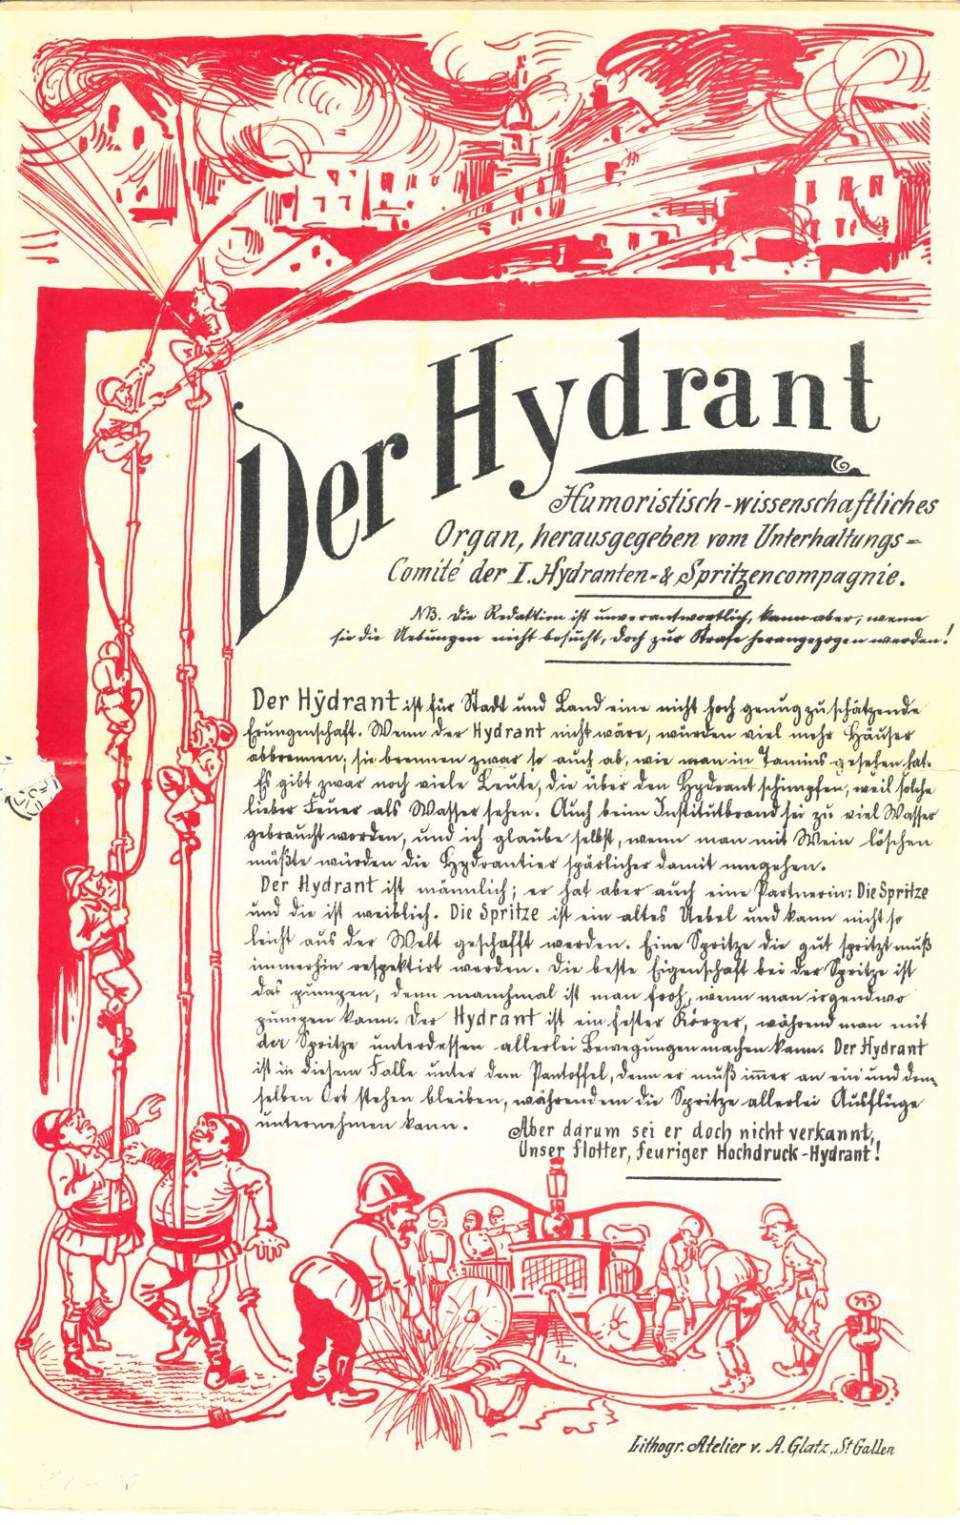 Der Hydrant
Humoristisch-wissenschaftliches
Organ, herausgegeben vom Unterhaltungs=
Comité der I. Hydranten- & Spritzencompagnie.
NB. Die Redaktion ist unverantwortlich, kann aber, wenn
sie die Uebungen nicht besucht, doch zur Strafe herangezogen werden!
Der Hÿdrant ist für Stadt und Land eine nicht hoch genug zu schätzende
Erungenschaft. Wenn der Hydrant nicht wäre, würden viel mehr Häuser
abbrennen; sie brennen zwar so auch ab, wie man in Tamins gesehen hat.
Es gibt zwar noch viele Leute, die über den Hydrant schimpfen, weil solche
lieber Feuer als Wasser sehen. Auch beim Institutbrand sei zu viel Wasser
gebraucht worden, und ich glaube selbst, wenn man mit Wein löschen
müßte würden die Hydrantier spärlicher damit umgehen.
Der Hydrant ist männlich; er hat aber auch eine Partnerin: Die Spritze
und die ist weiblich. Die Spritze ist ein altes Uebel und kann nicht so
leicht aus der Welt geschafft werden. Eine Spritze die gut spritzt muß
immerhin respektirt werden. Die beste Eigenschaft bei der Spritze ist
das pumpen, denn manchmal ist man froh, wenn man irgendwo
pumpen kann. Der Hydrant ist ein fester Körper, während man mit
der Spritze unterdessen allerlei Bewegungen machen kann. Der Hydrant
ist in diesem Falle unter dem Pantoffel, denn er muß immer an ein und dem-
selben Ort stehen bleiben, währenddem die Spritze allerlei Ausflüge
unternehmen kann.
Aber darum sei er doch nicht verkannt,
Unser flotter, feuriger Hochdruck-Hydrant!
Lithogr. Atelier v. A. Glatz, St Gallen